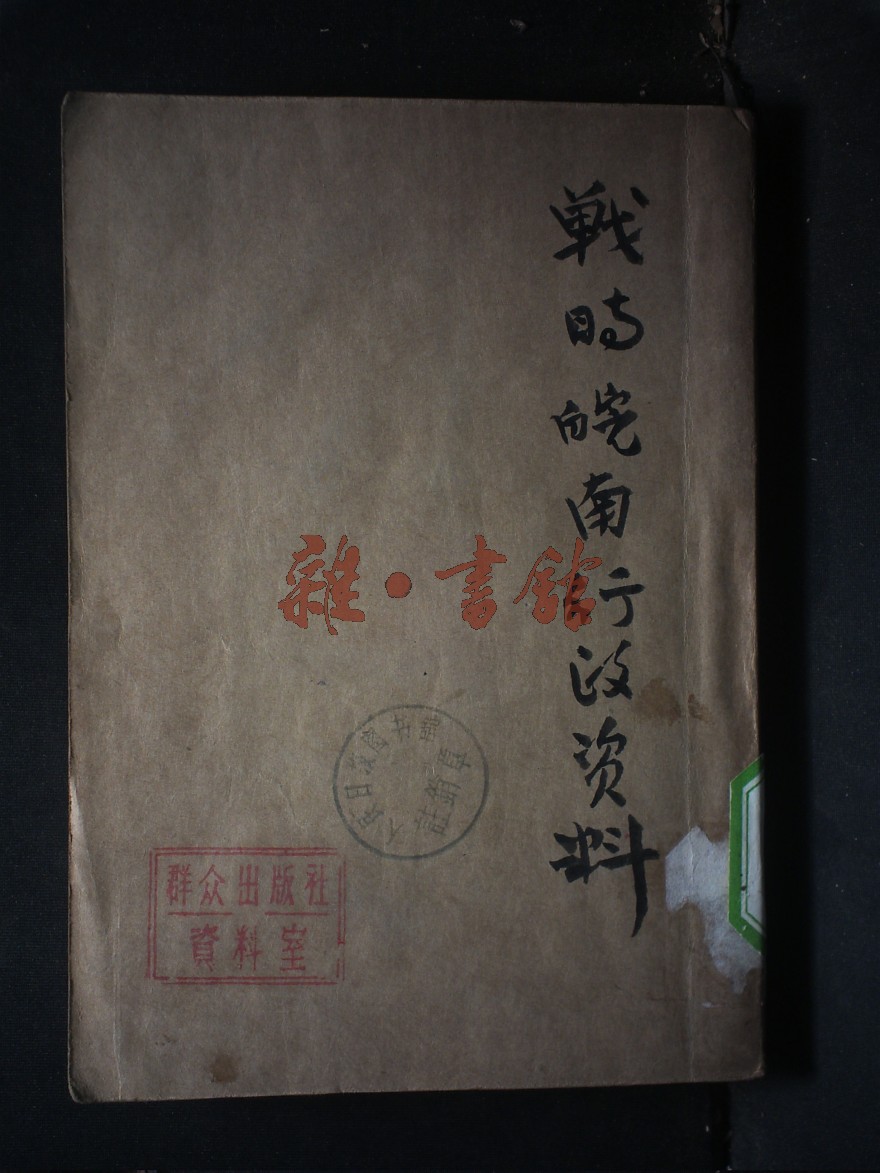 戰時皖南行政资料
雜·書館
群众出版社
資料室